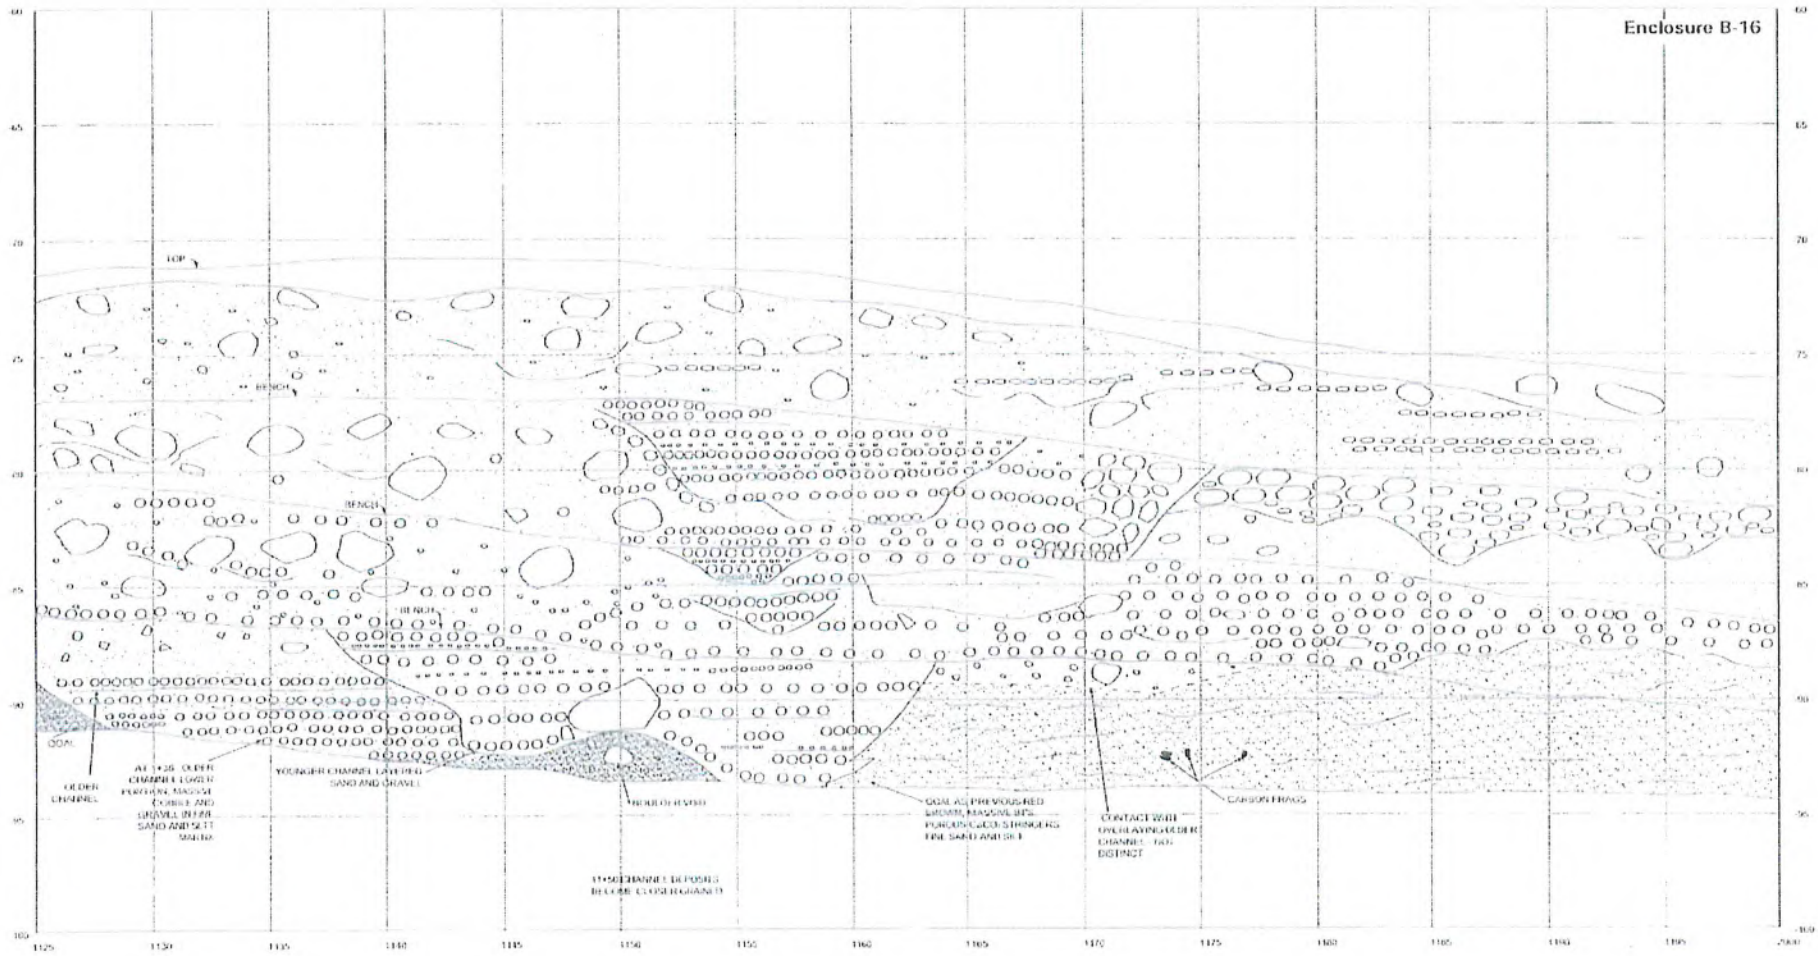 Enclosure B-16
-60
60
-65
65
70
70
TOP
75
75
BENCH
80
80
BENCH
85
85
BENCH
90
90
QOAL
OLDER
CHANNEL
OLDER
CHANNEL LOWER
PORTION, MASSIVE
COBBLE AND
GRAVEL IN FINE
SAND AND SILT
MATRIX
YOUNGER CHANNEL LAYERED
SAND AND GRAVEL
BOULDER VOID
11+50 CHANNEL DEPOSITS
BECOME CLOSER GRAINED
QOAL AS PREVIOUS RED
BROWN, MASSIVE
POROUS CaCO3 STRINGERS
FINE SAND AND SILT
CONTACT WITH
OVERLAYING OLDER
CHANNEL NOT
DISTINCT
CARBON FRAGS
95
95
-100
-100
1125
1130
1135
1140
1145
1150
1155
1160
1165
1170
1175
1180
1185
1190
1195